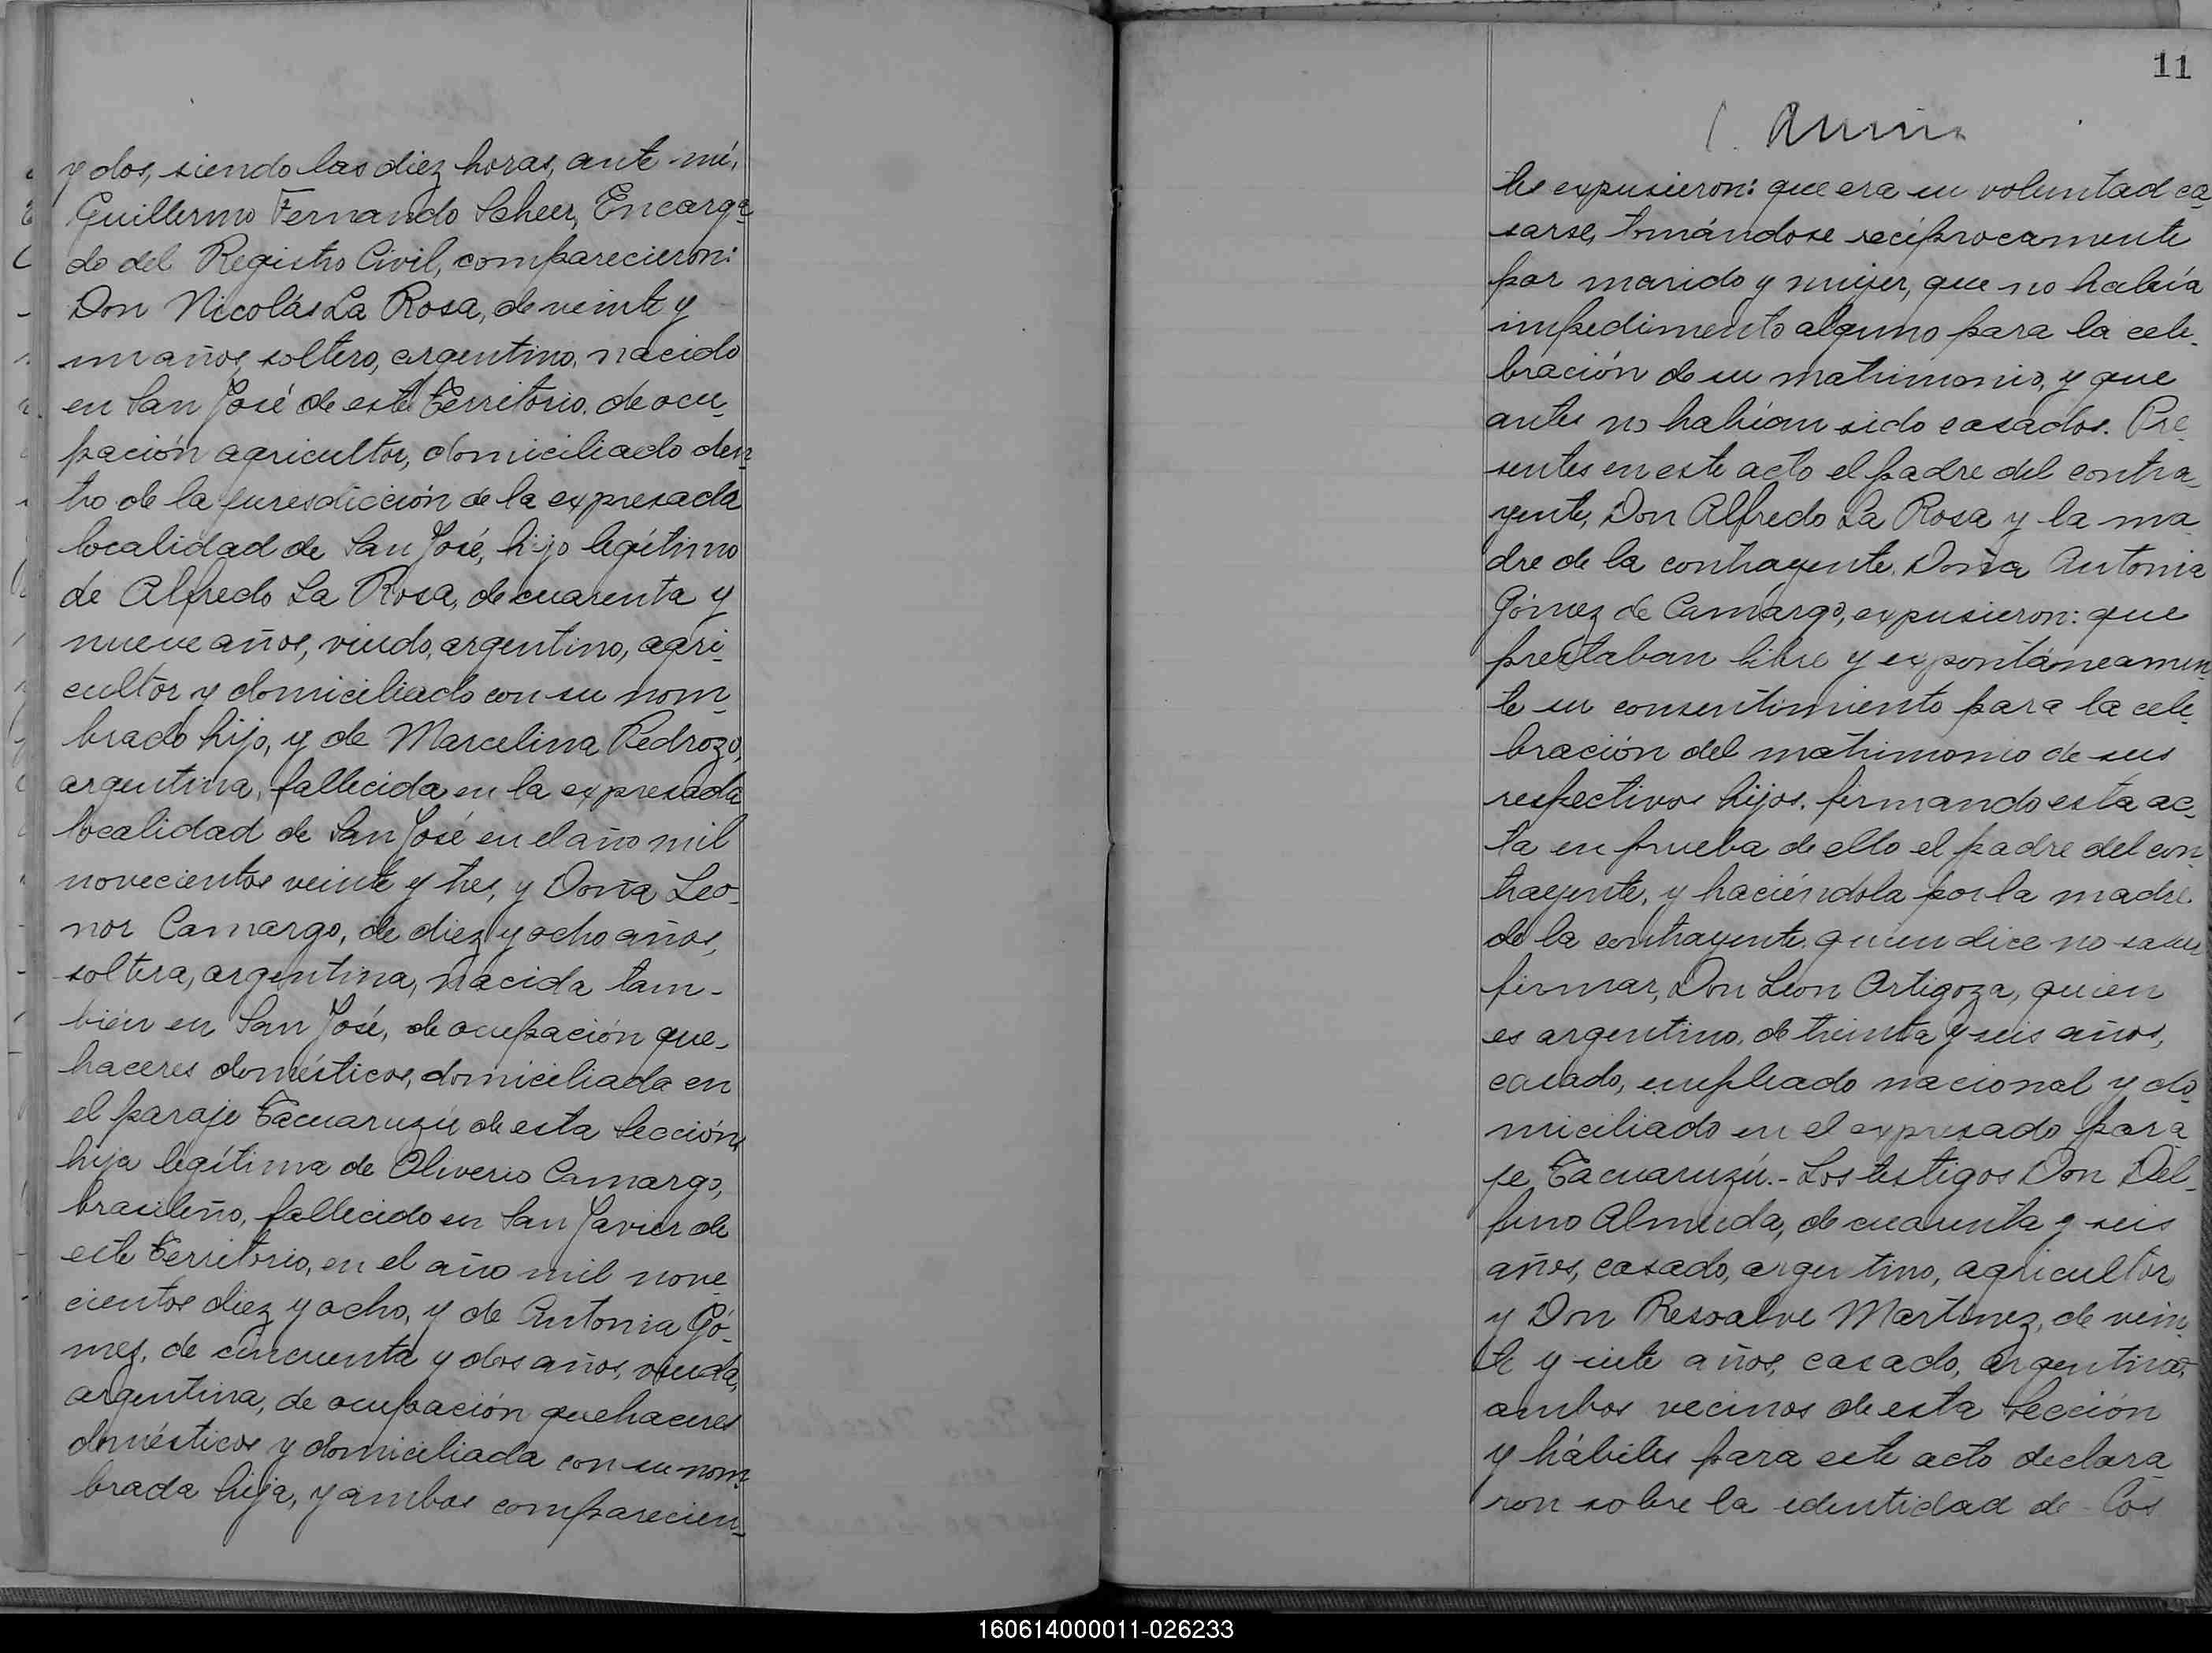 y dos, siendo las diez horas, ante mí,
Guillermo Fernando Scheer, Encarga
do del Registro Civil, comparecieron:
Don Nicolás La Rosa, de veinte y
un años, soltero, argentino, nacido
en San José de este Territorio, de ocu-
pación agricultor, domiciliado den
tro de la jurisdicción de la expresada
localidad de San José, hijo legítimo
de Alfredo La Rosa, de cuarenta y
nueve años, viudo, argentino, agri-
cultor y domiciliado con su nom-
brado hijo, y de Marcelina Pedrozo,
argentina, fallecida en la expresada
localidad de San José en el año mil
novecientos veinte y tres, y Doña Leo-
nor Camargo, de diez y ocho años,
soltera, argentina, nacida tam-
bién en San José, de ocupación que-
haceres domésticos, domiciliada en
el paraje Tacuaruzú de esta Sección,
hija legítima de Oliverio Camargo,
brasileño, fallecido en San Javier de
este Territorio, en el año mil nove-
cientos diez y ocho, y de Antonia Gó-
mez, de cincuenta y dos años, viuda,
argentina, de ocupación quehaceres
domésticos y domiciliada con su nom-
brada hija, y ambos comparecien-
11
tes expusieron: que era su voluntad ca-
sarse, tomándose recíprocamente
por marido y mujer, que no había
impedimento alguno para la cele-
bración de su matrimonio, y que
antes no habían sido casados. Pre-
sentes en este acto el padre del contra-
yente, Don Alfredo La Rosa y la ma-
dre de la contrayente, Doña Antonia
Gómez de Camargo, expusieron: que
prestaban libre y expontáneamen-
te su consentimiento para la cele-
bración del matrimonio de sus
respectivos hijos, firmando esta ac-
ta en prueba de ello el padre del con
trayente, y haciéndola por la madre
de la contrayente, quien dice no saber
firmar, Don Leon Artigoza, quien
es argentino, de treinta y seis años,
casado, empleado nacional y do-
miciliado en el expresado para-
je Tacuaruzú.- Los testigos Don Del-
fino Almeida, de cuarenta y seis
años, casado, argentino, agricultor,
y Don Resoalve Martinez, de vein-
te y siete años, casado, argentino,
ambos vecinos de esta Sección
y hábiles para este acto declara-
ron sobre la identidad de los
160614000011-026233